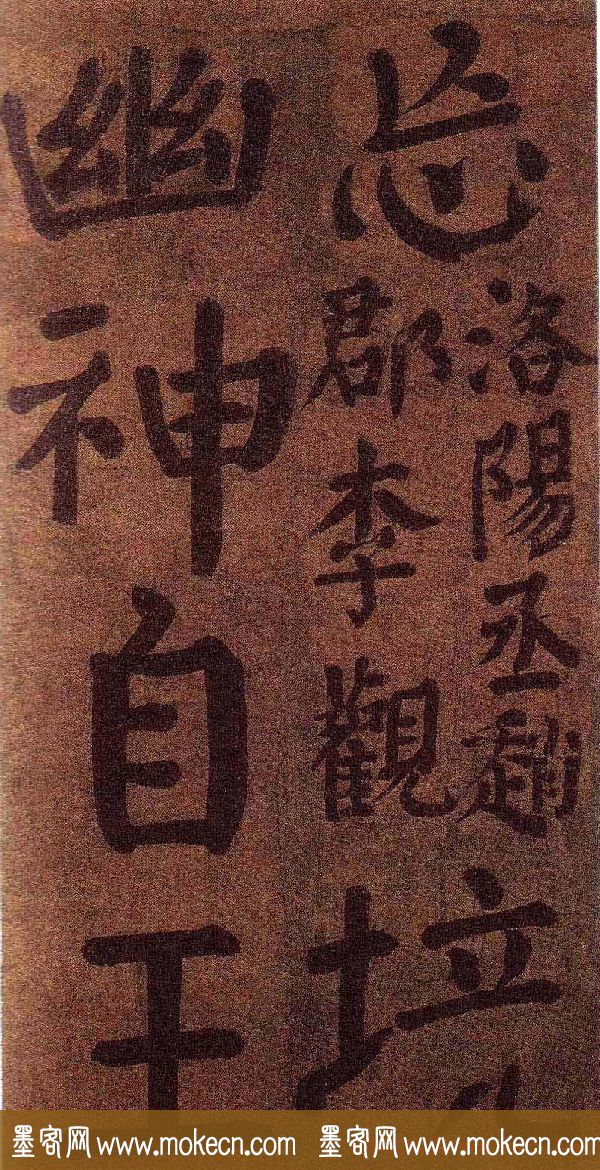 忘
洛陽丞趙
郡李觀
幽神自
墨客网 www.mokecn.com 墨客网 www.mokecn.com